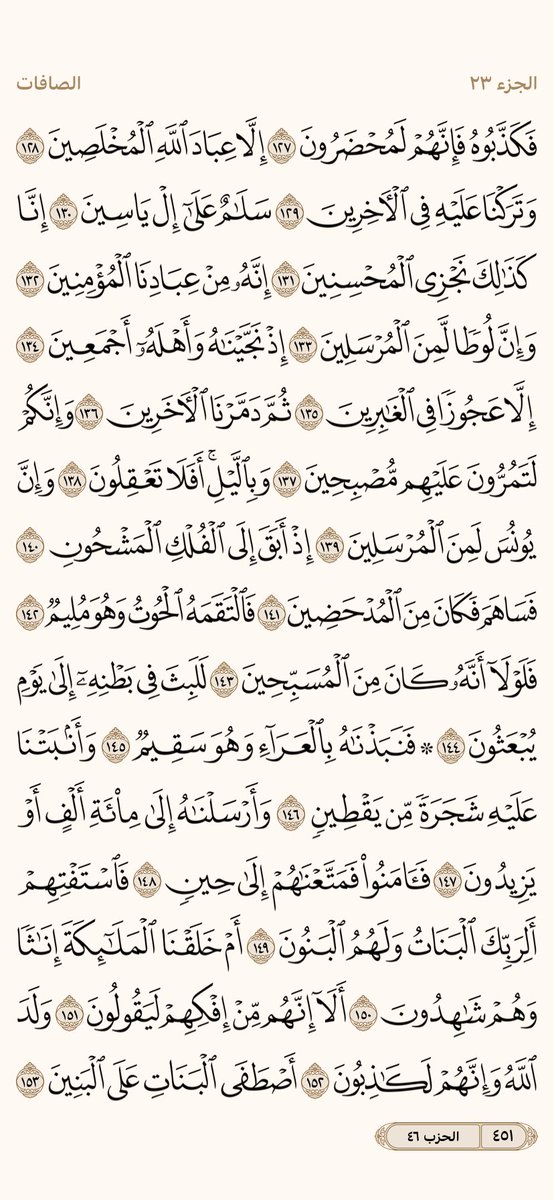 الجزء ٢٣ الصافات
فَكَذَّبُوهُ فَإِنَّهُمْ لَمُحْضَرُونَ ١٢٧ إِلَّا عِبَادَ ٱللَّهِ ٱلْمُخْلَصِينَ ١٢٨
وَتَرَكْنَا عَلَيْهِ فِي ٱلْـَٔاخِرِينَ ١٢٩ سَلَـٰمٌ عَلَىٰٓ إِلْ يَاسِينَ ١٣٠ إِنَّا
كَذَٰلِكَ نَجْزِي ٱلْمُحْسِنِينَ ١٣١ إِنَّهُۥ مِنْ عِبَادِنَا ٱلْمُؤْمِنِينَ ١٣٢
وَإِنَّ لُوطًا لَّمِنَ ٱلْمُرْسَلِينَ ١٣٣ إِذْ نَجَّيْنَـٰهُ وَأَهْلَهُۥٓ أَجْمَعِينَ ١٣٤
إِلَّا عَجُوزًا فِي ٱلْغَـٰبِرِينَ ١٣٥ ثُمَّ دَمَّرْنَا ٱلْـَٔاخَرِينَ ١٣٦ وَإِنَّكُمْ
لَتَمُرُّونَ عَلَيْهِم مُّصْبِحِينَ ١٣٧ وَبِٱلَّيْلِ ۚ أَفَلَا تَعْقِلُونَ ١٣٨ وَإِنَّ
يُونُسَ لَمِنَ ٱلْمُرْسَلِينَ ١٣٩ إِذْ أَبَقَ إِلَى ٱلْفُلْكِ ٱلْمَشْحُونِ ١٤٠
فَسَاهَمَ فَكَانَ مِنَ ٱلْمُدْحَضِينَ ١٤١ فَٱلْتَقَمَهُ ٱلْحُوتُ وَهُوَ مُلِيمٌ ١٤٢
فَلَوْلَآ أَنَّهُۥ كَانَ مِنَ ٱلْمُسَبِّحِينَ ١٤٣ لَلَبِثَ فِي بَطْنِهِۦٓ إِلَىٰ يَوْمِ
يُبْعَثُونَ ١٤٤ ۞ فَنَبَذْنَـٰهُ بِٱلْعَرَآءِ وَهُوَ سَقِيمٌ ١٤٥ وَأَنۢبَتْنَا
عَلَيْهِ شَجَرَةً مِّن يَقْطِينٍ ١٤٦ وَأَرْسَلْنَـٰهُ إِلَىٰ مِا۟ئَةِ أَلْفٍ أَوْ
يَزِيدُونَ ١٤٧ فَـَٔامَنُوا۟ فَمَتَّعْنَـٰهُمْ إِلَىٰ حِينٍ ١٤٨ فَٱسْتَفْتِهِمْ
أَلِرَبِّكَ ٱلْبَنَاتُ وَلَهُمُ ٱلْبَنُونَ ١٤٩ أَمْ خَلَقْنَا ٱلْمَلَـٰٓئِكَةَ إِنَـٰثًا
وَهُمْ شَـٰهِدُونَ ١٥٠ أَلَآ إِنَّهُم مِّنْ إِفْكِهِمْ لَيَقُولُونَ ١٥١ وَلَدَ
ٱللَّهُ وَإِنَّهُمْ لَكَـٰذِبُونَ ١٥٢ أَصْطَفَى ٱلْبَنَاتِ عَلَى ٱلْبَنِينَ ١٥٣
٤٥١ الحزب ٤٦